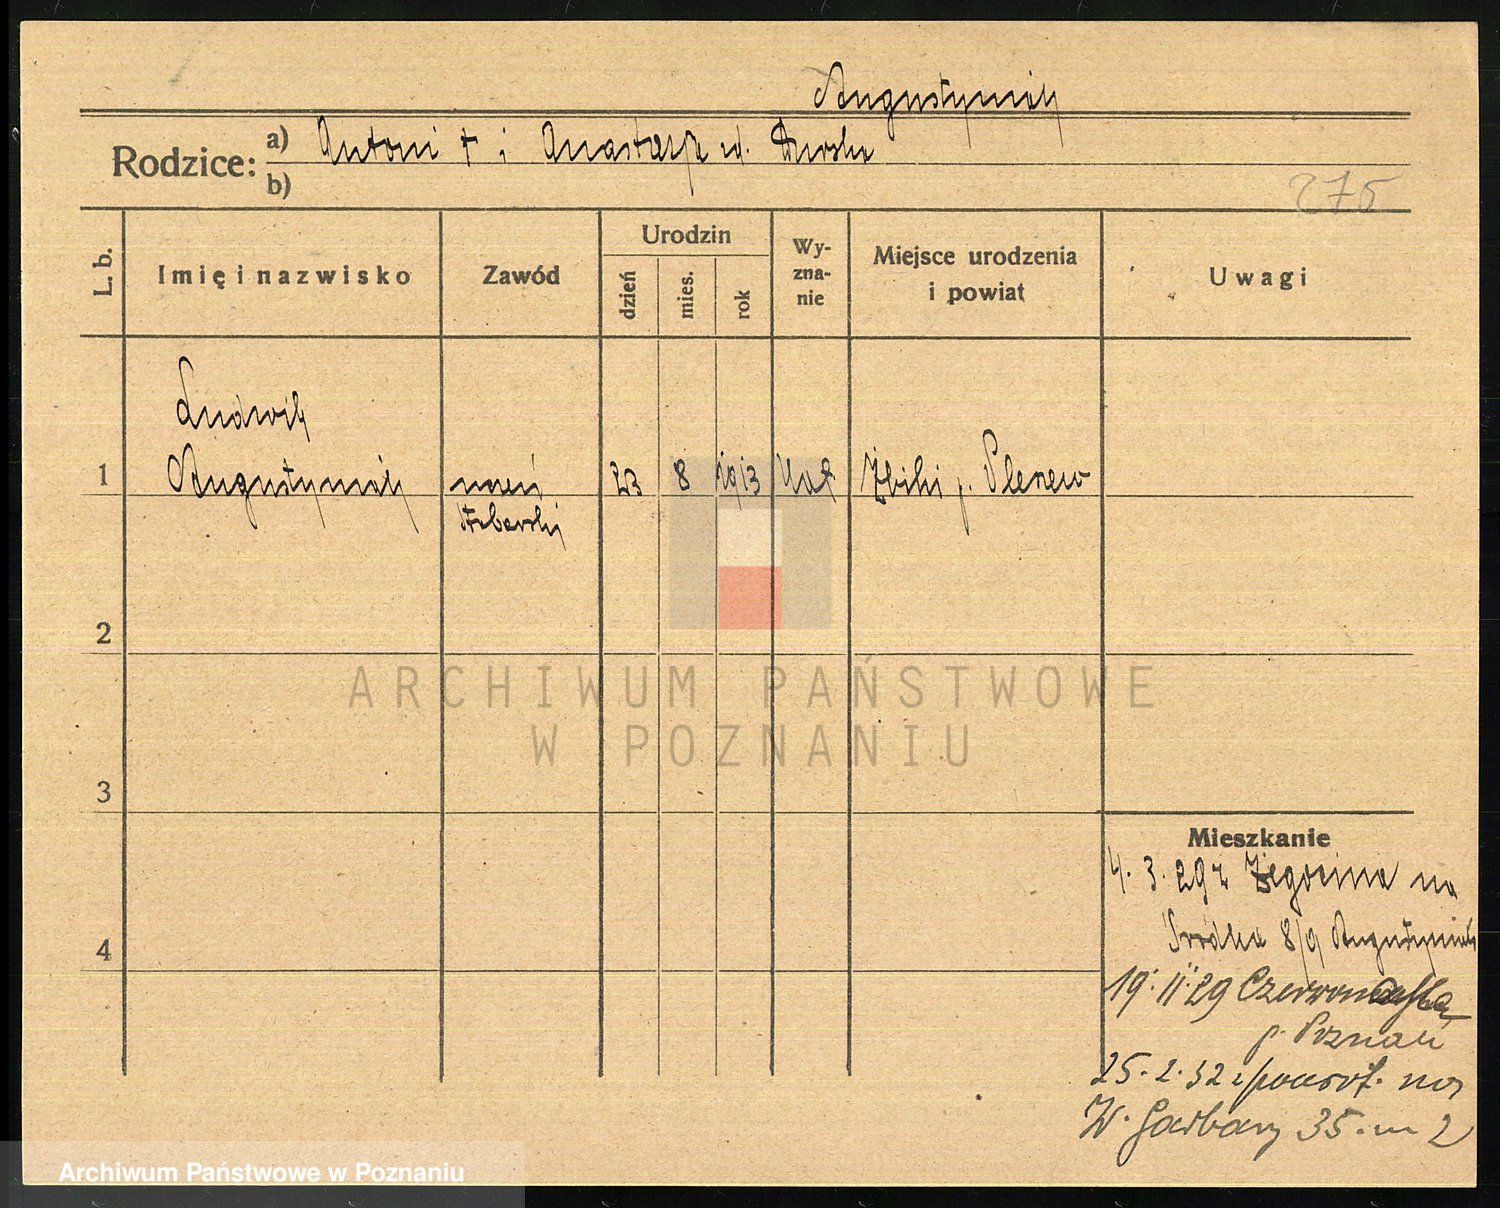 Augustyniak
Rodzice: a) Antoni † i Anastazja ur. Durska
b)
275
L. b.
Imię i nazwisko
Zawód
Urodzin
dzień
mies.
rok
Wy-
zna-
nie
Miejsce urodzenia
i powiat
Uwagi
Ludwik
1 Augustyniak uczeń 23 8 1913 kat Żbiki p. Pleszew
stolarski
2
ARCHIWUM PAŃSTWOWE
W POZNANIU
3
Mieszkanie
4. 3. 29 z Żegocina na
Śródka 8/9 Augustyniak
4
19. II. 29
p. Poznań
25. 2. 32 z powrot. na
W. Garbary 35. m 2
Archiwum Państwowe w Poznaniu